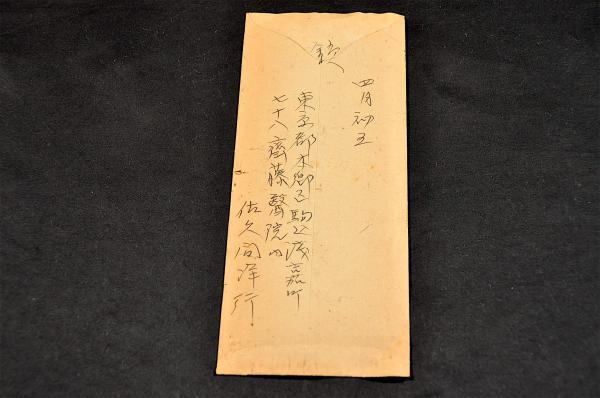 四月初五
東京都本郷区駒込浅嘉町
七十八 齋藤醫院内
佐久間澤行